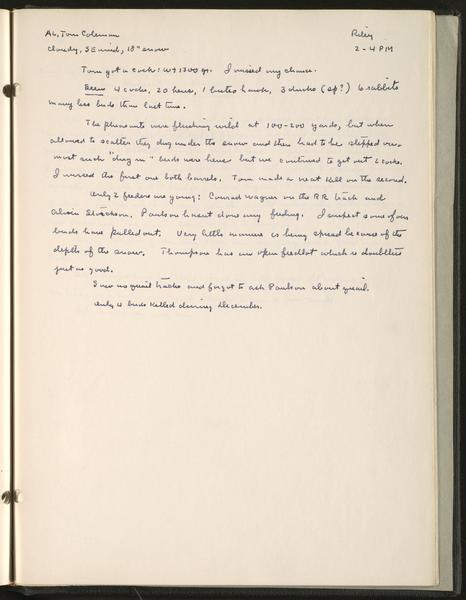 AL, Tom Coleman Riley
Cloudy, SE wind, 18" snow 2-4 PM
Tom got a cock: wt 1300 gr. I missed my chance.
Seen 4 cocks, 20 hens, 1 buteo hawk, 3 ducks (sp?) 6 rabbits
many less birds than last time.
The pheasants were flushing wild at 100-200 yards, but when
allowed to scatter they dug under the snow and then had to be stepped over.
most such "dug in" birds were hens but we continued to get out 2 cocks.
I missed the first one both barrels. Tom made a neat kill on the second.
Only 2 feeders are going: Conrad Wagner on the RR track and
Alvin Paulson hasnt done any feeding. I suspect some of our
birds have pulled out. Very little manure is being spread because of the
depth of the snow. Thompson has an open feedlot which is doubtless
just as good.
I saw no quail tracks and forgot to ask Paulson about quail.
Only birds killed during December.